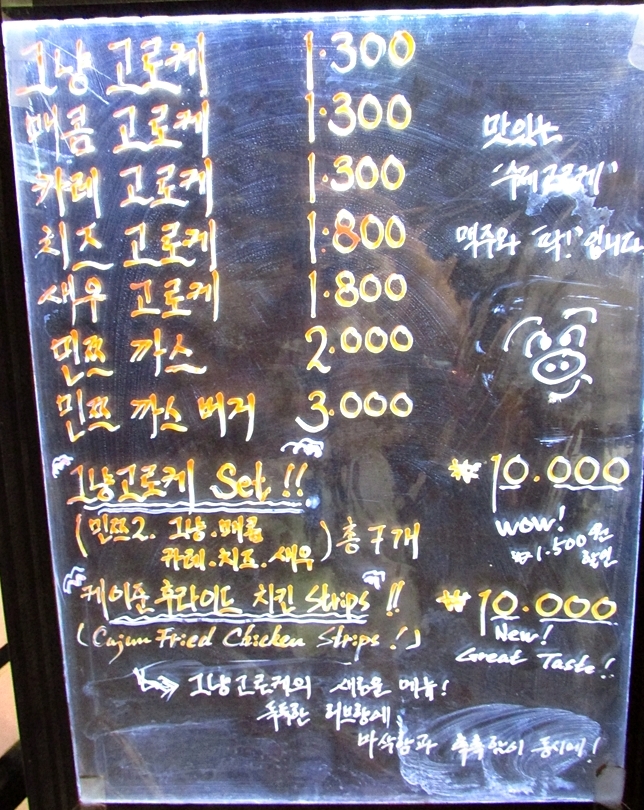 그냥 고로케 1.300
매콤 고로케 1.300
카레 고로케 1.300
치즈 고로케 1.800
새우 고로케 1.800
민쯔 까스 2.000
민쯔 까스 버거 3.000
맛있는
"수제고로케"
맥주와 "딱!"입니다
그냥고로케 Set!! ₩10.000
(민쯔2. 그냥.매콤
카레.치즈.새우) 총7개
wow!
₩1.500원
할인
케이준후라이드 치킨 Strips!! ₩10.000
(Cajun Fried Chicken Strips!)
New!
Great Taste!
그냥고로케의 새로운 메뉴!
독특한 허브향에
바삭함과 촉촉함이 동시에!